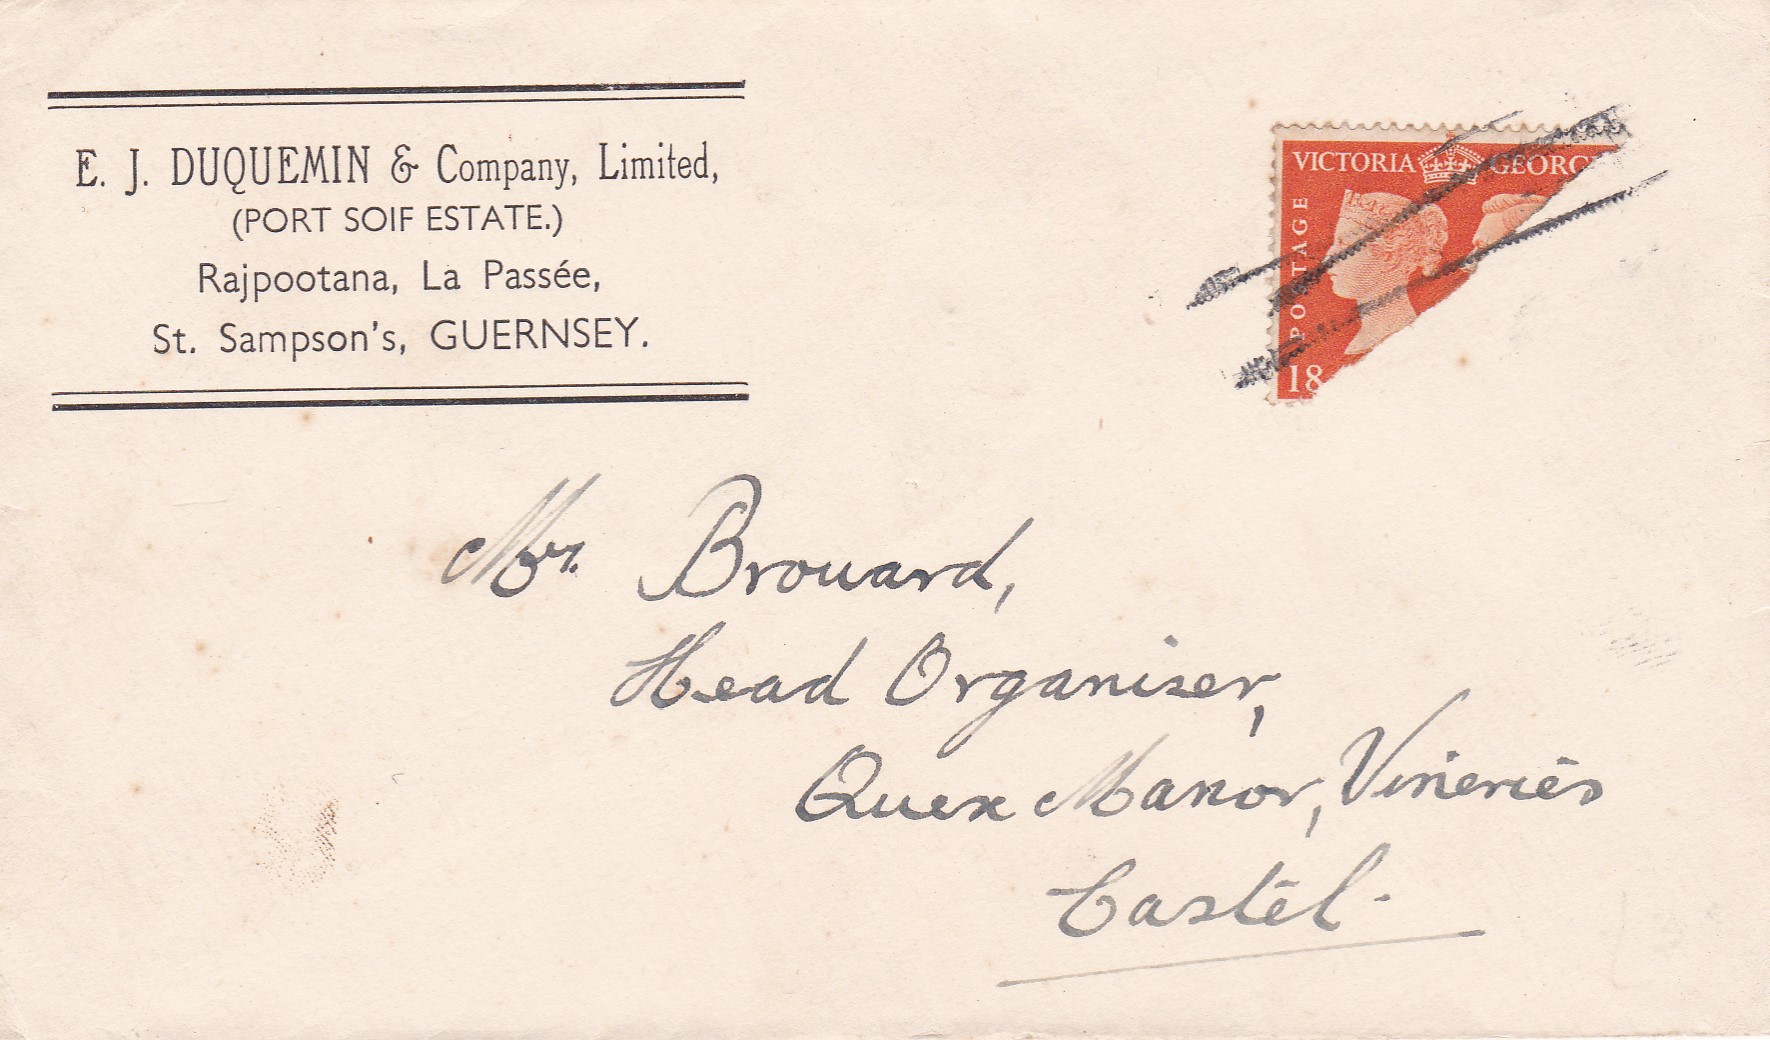 E. J. DUQUEMIN & Company, Limited,
(PORT SOIF ESTATE.)
Rajpootana, La Passée,
St. Sampson's, GUERNSEY.
VICTORIA GEORG
POSTAGE
18
Mr. Brouard,
Head Organiser,
Quex Manor, Vineries
Castel.